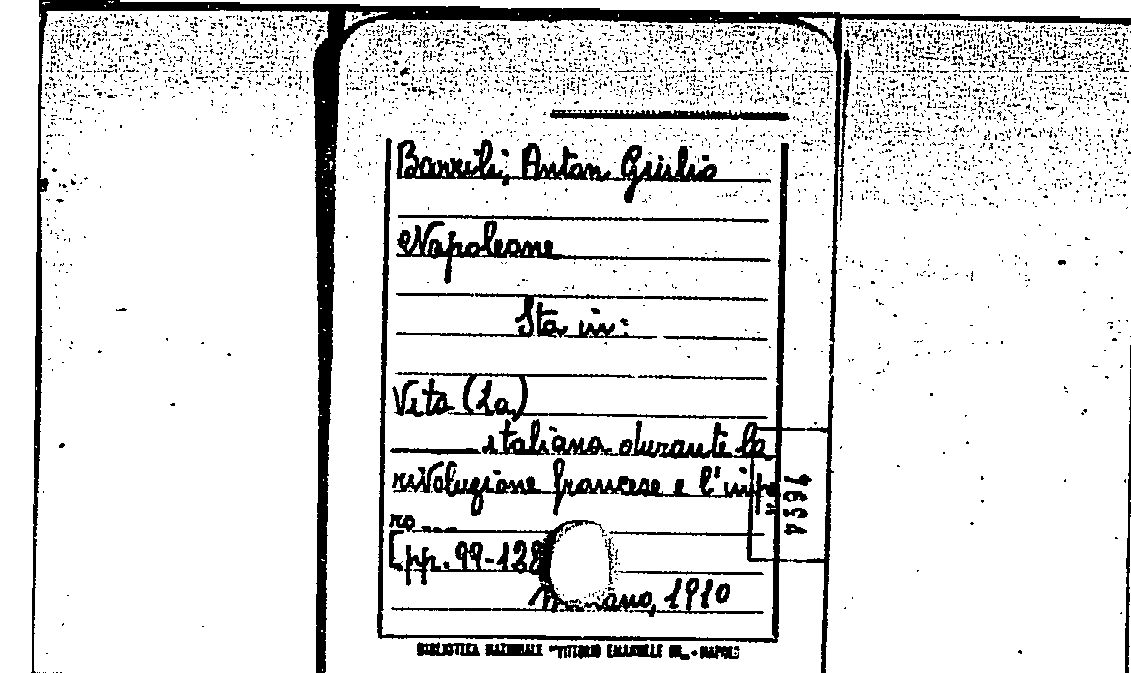 Barrili, Anton Giulio
Napoleone
Sta in:
Vita (La)
italiana durante la
rivoluzione francese e l'impe
ro ...
[pp. 99-128
Milano, 1910
7634
BIBLIOTECA NAZIONALE "VITTORIO EMANUELE III" - NAPOLI